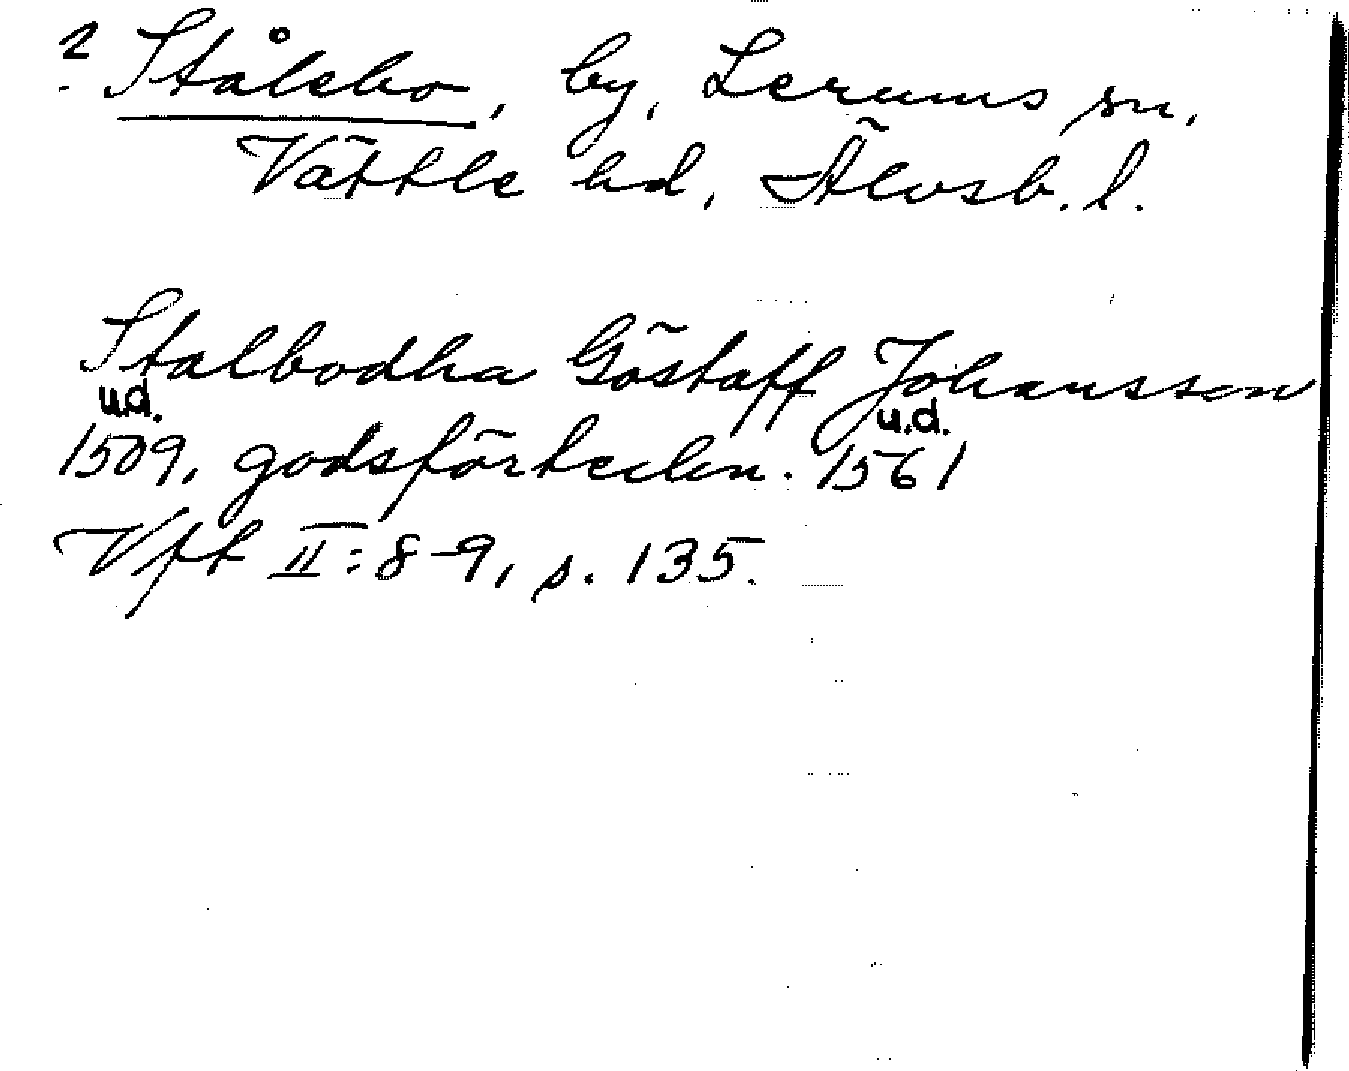 ? Stålebo, by, Lerums sn,
Vättle hd, Älvsb. l.
Stalbodha Göstaff Johansson
u.d. u.d.
1509, godsförteckn. 1561
Vft II:8-9, s. 135.